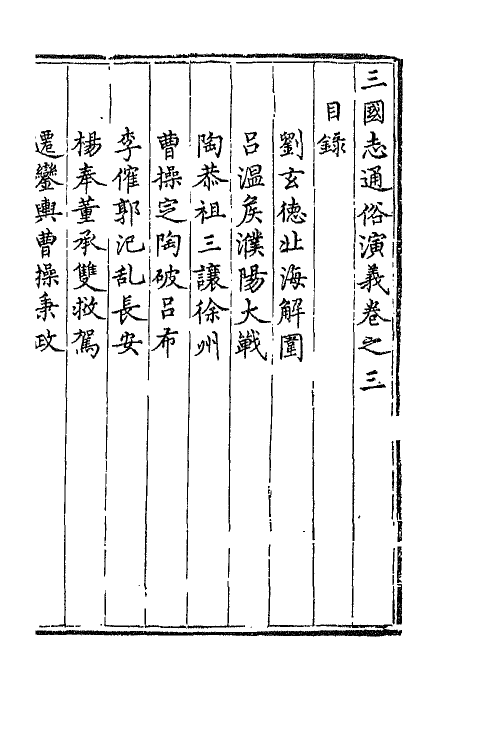 三國志通俗演義卷之三
目錄
劉玄德北海解圍
呂溫矦濮陽大戰
陶恭祖三讓徐州
曹操定陶破呂布
李傕郭汜乱長安
楊奉董承雙救駕
遷鑾輿曹操秉政